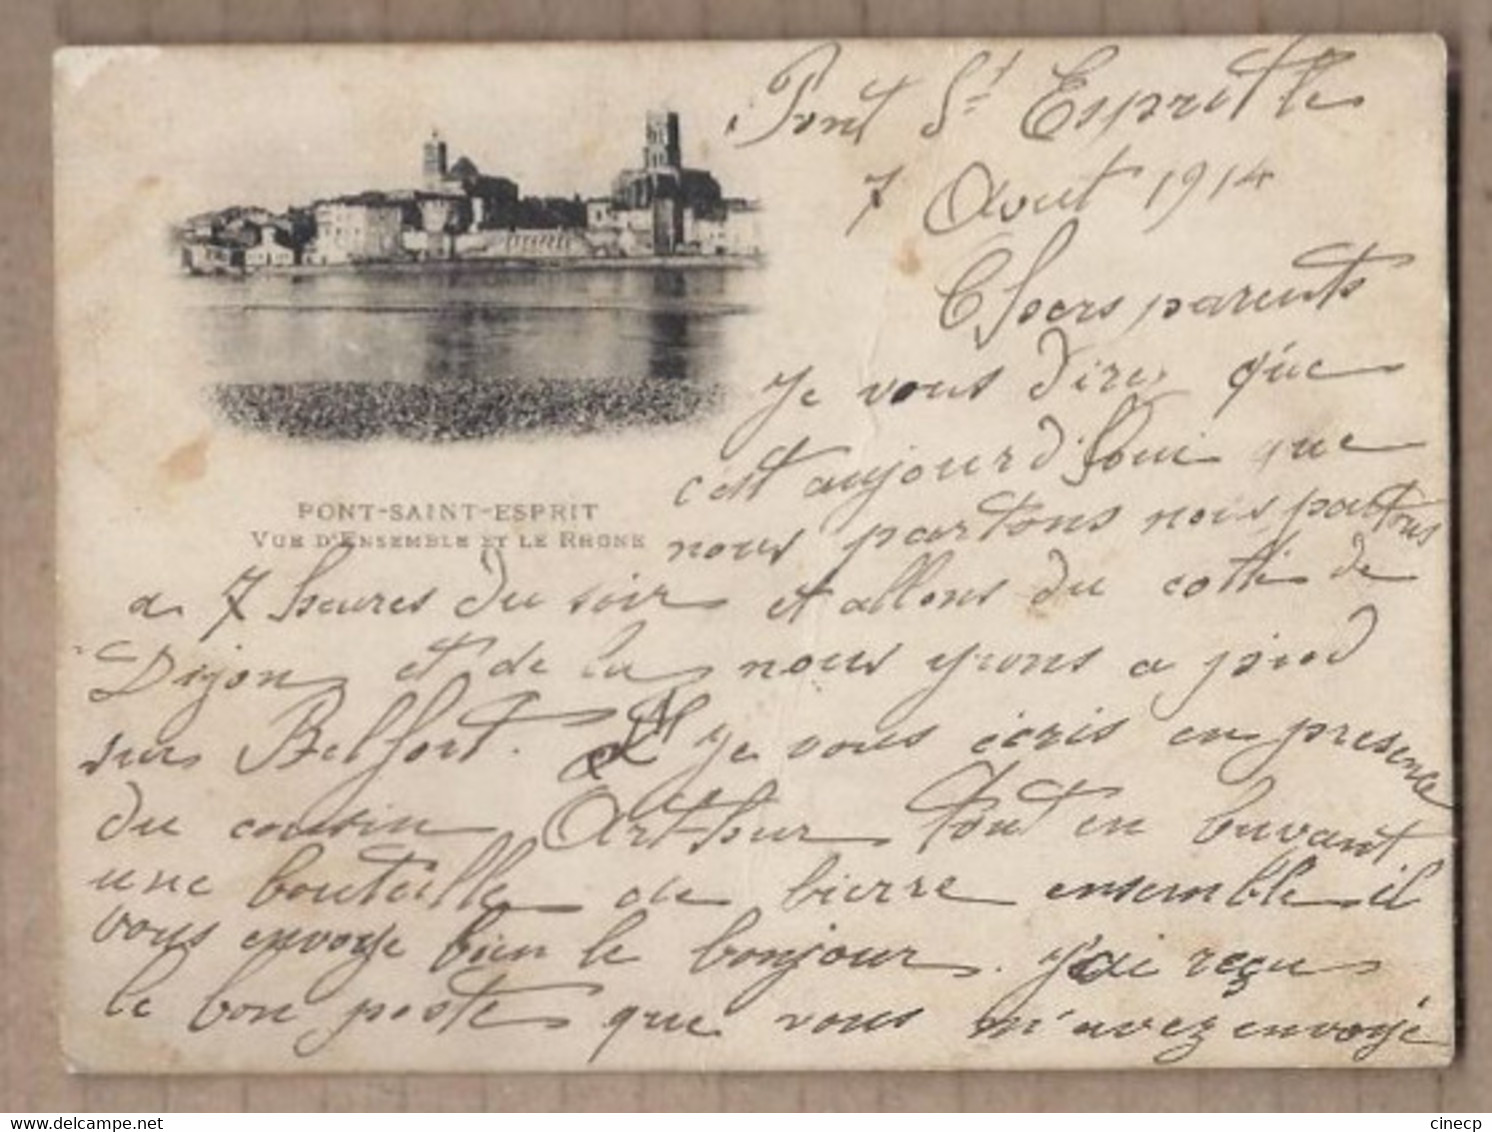 Pont St Esprit le
7 Aout 1914
Chers parents
Je vous dires que
c'est aujourd'houi que
nous partons nous partons
PONT-SAINT-ESPRIT
VUE D'ENSEMBLE ET LE RHONE
a 7 heures du soir et allons du cotté de
Dijon et de la nous yrons a pied
sur Belfort. Je vous écris en presence
du cousin Arthur tout en buvant
une bouteille de bierre ensemble il
vous envoye bien le bonjour. j'ai reçu
le bon poste que vous m'avez envoyé
cinecp